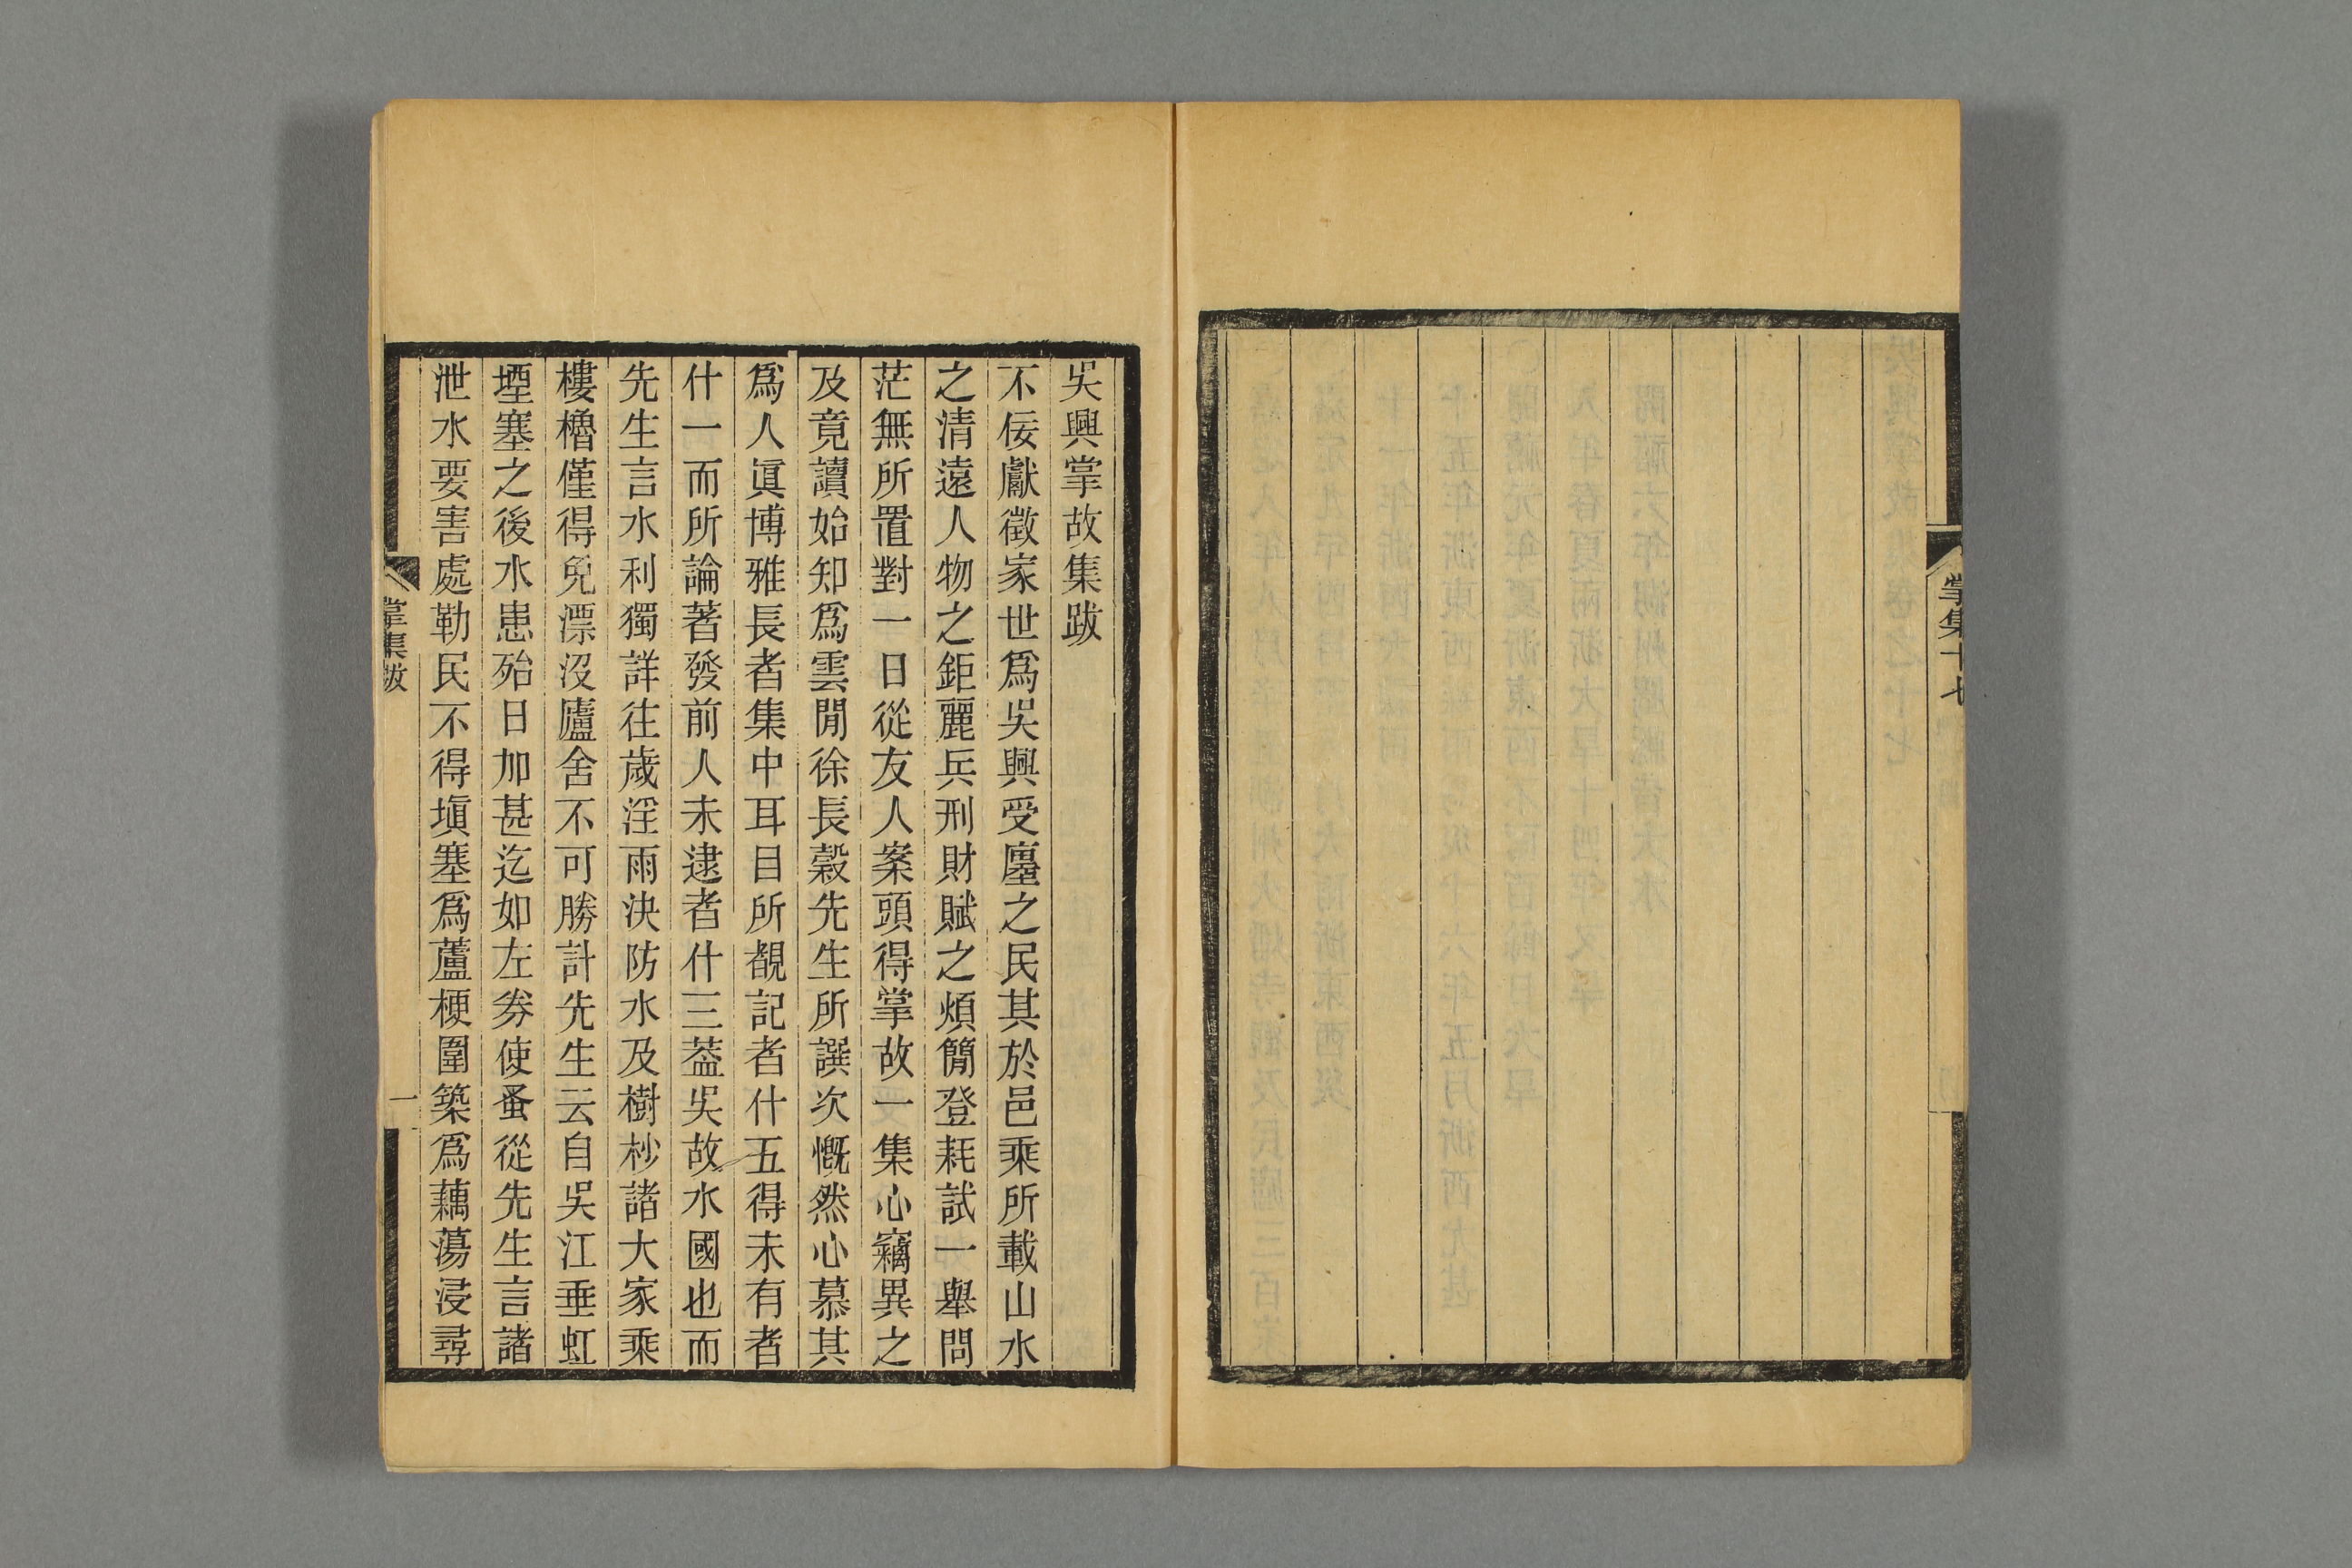 掌集十七
吳興掌故集跋
不佞獻徵家世爲吳興受廛之民其於邑乘所載山水
之清遠人物之鉅麗兵刑財賦之煩簡登耗試一舉問
茫無所置對一日從友人案頭得掌故一集心竊異之
及竟讀始知爲雲閒徐長穀先生所譔次慨然心慕其
爲人眞博雅長者集中耳目所覩記者什五得未有者
什一而所論著發前人未逮者什三葢吳故水國也而
先生言水利獨詳往歲淫雨決防水及樹杪諸大家乘
樓櫓僅得免漂沒廬舍不可勝計先生云自吳江垂虹
堙塞之後水患殆日加甚迄如左券使蚤從先生言諸
泄水要害處勒民不得塡塞爲蘆梗圍築爲藕蕩浸尋
掌集跋
一